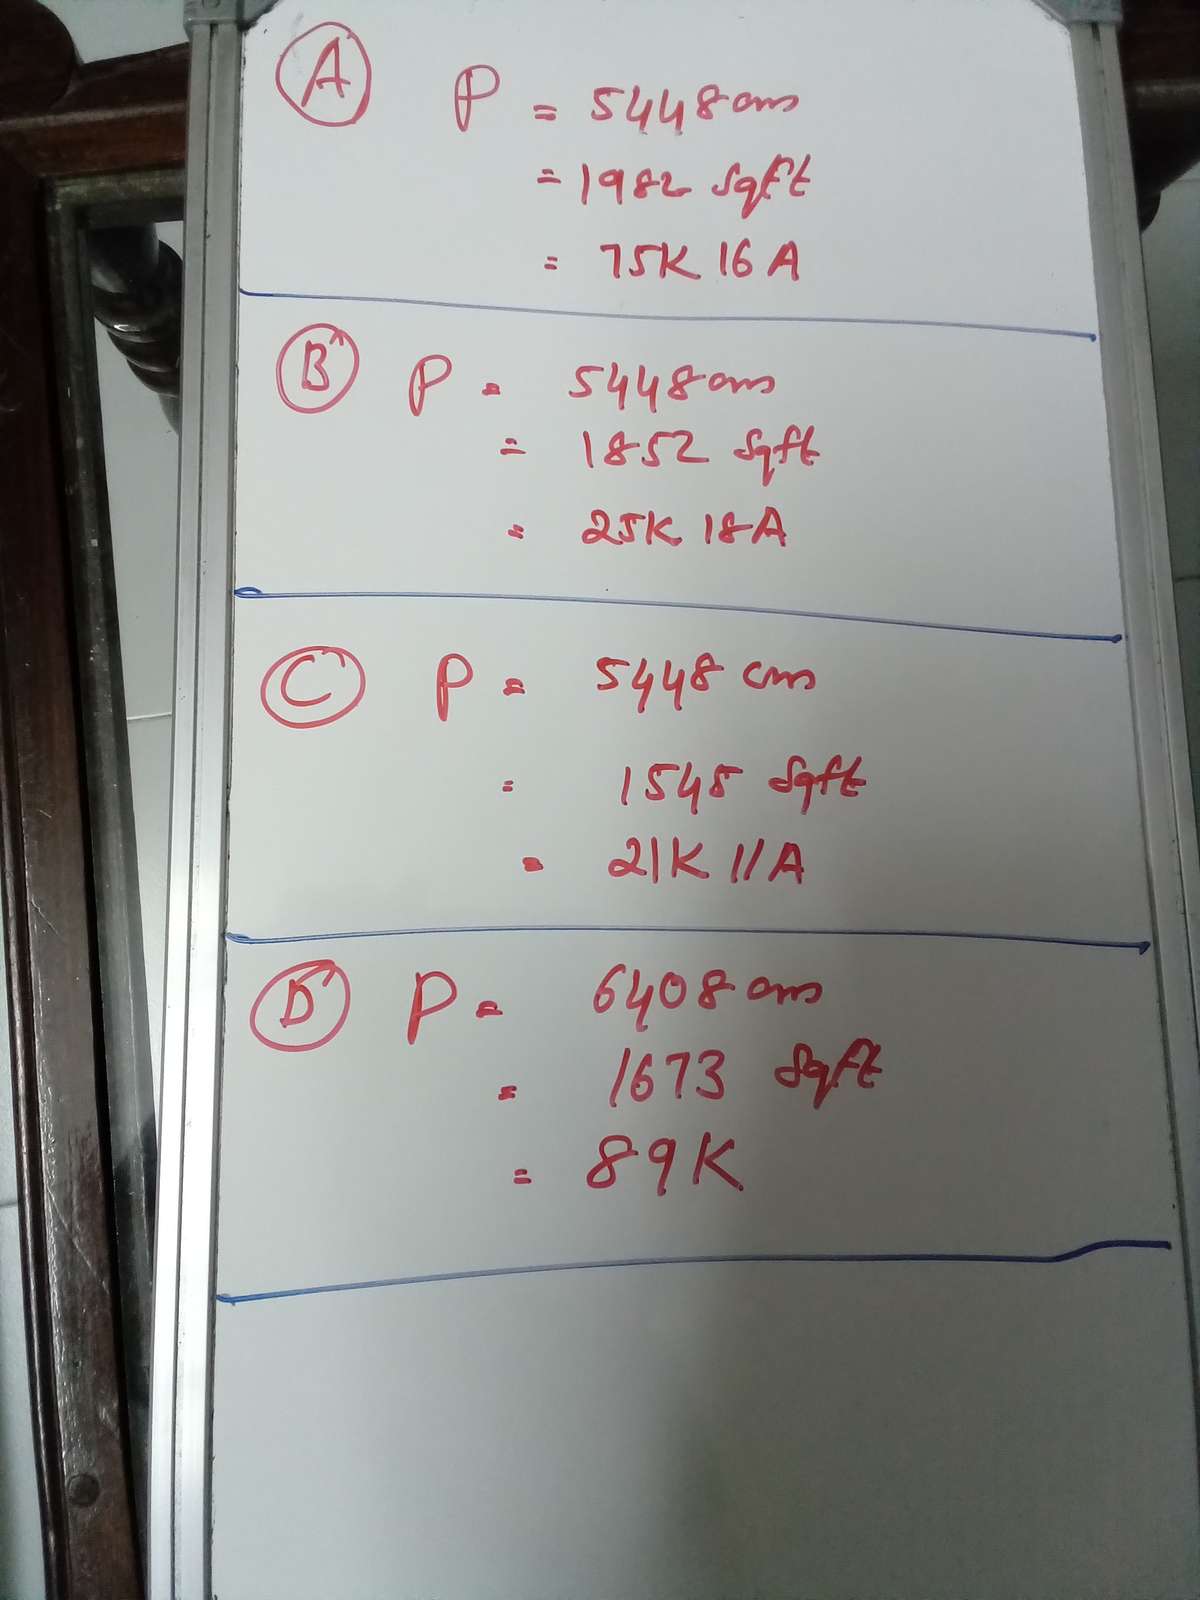 A P = 5448 cms
= 1982 Sqft
= 75K 16 A
B P = 5448 cms
= 1852 Sqft
= 25K 18A
C P = 5448 cms
= 1545 Sqft
= 21K 11A
D P = 6408 cms
= 1673 Sqft
= 89K